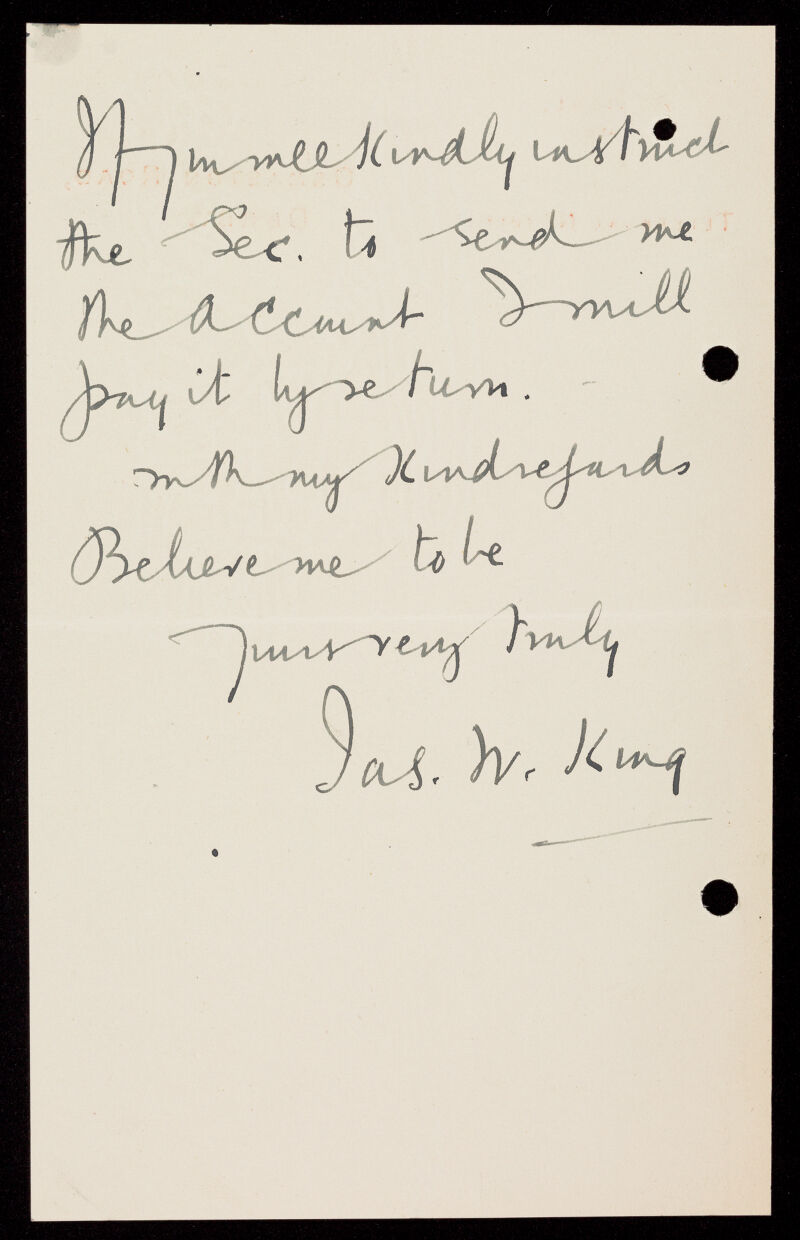 If you will kindly instruct
the Sec. to send me
the account I will
pay it by return.
with my kind regards
Believe me to be
yours very truly
Jas. W. King